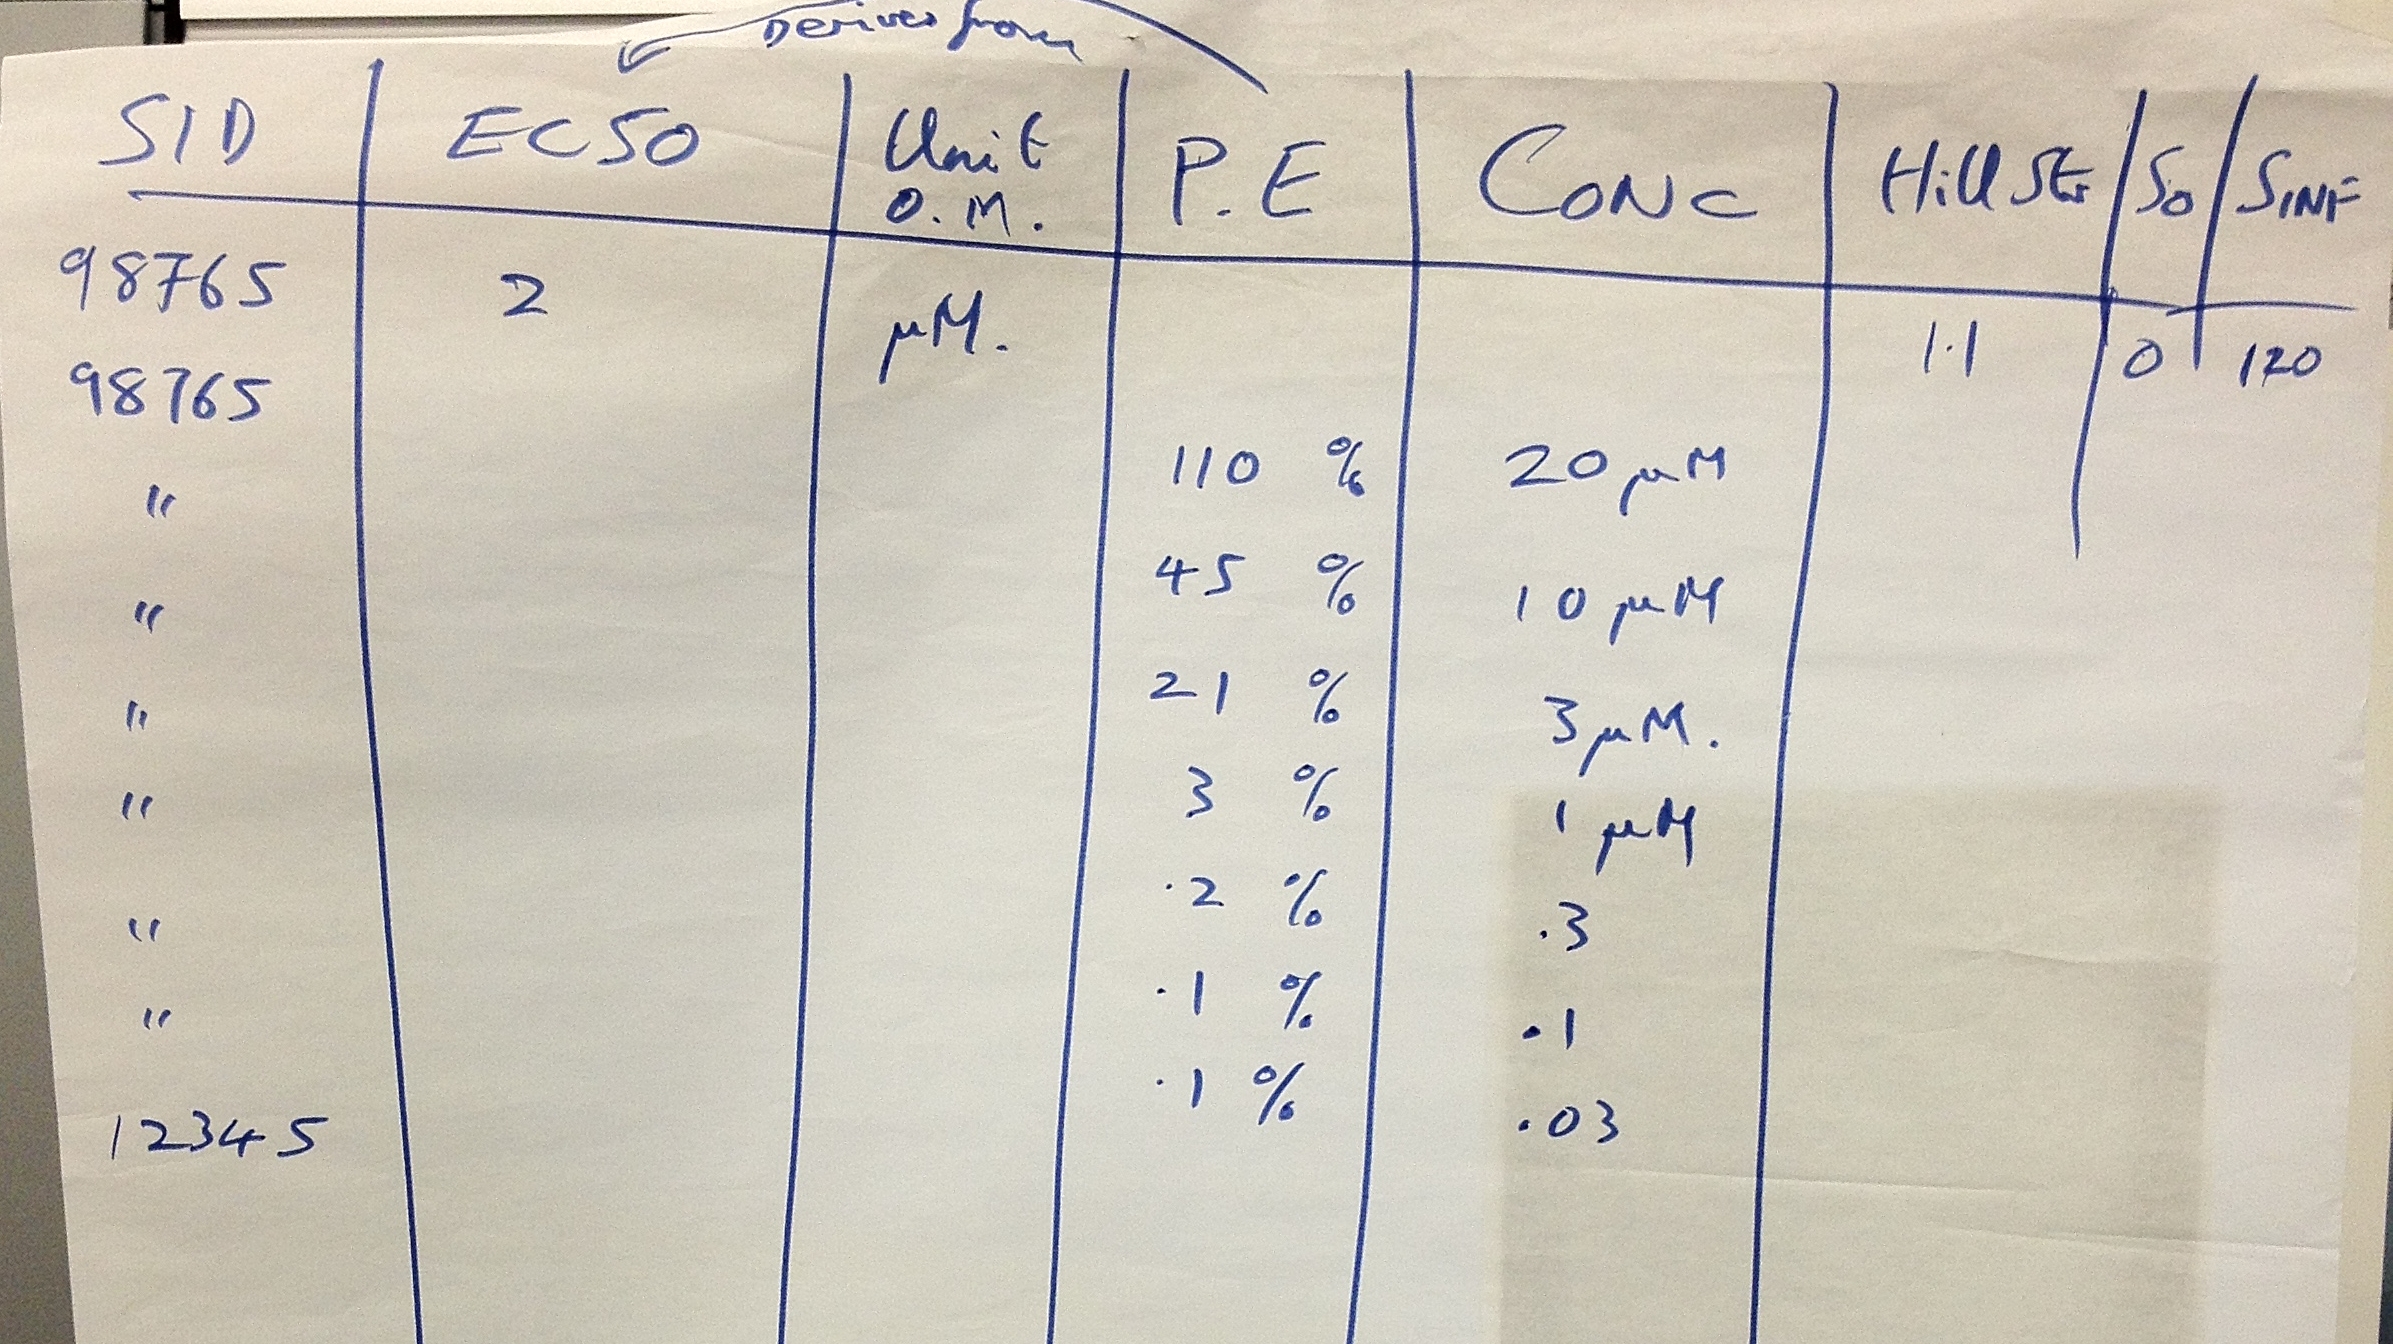 Derives from
SID EC50 Unit O.M. P.E CONC Hill S0 SINF
98765 2 μM. 1.1 0 120
98765
" 110 % 20 μM
" 45 % 10 μM
" 21 % 3 μM.
" 3 % 1 μM
" .2 % .3
" .1 % .1
12345 .1 % .03